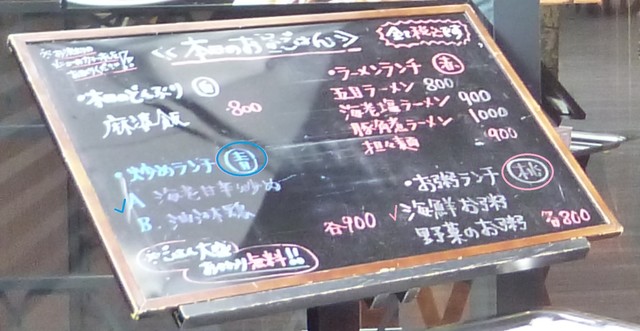 ≪本日のお昼ごはん≫
全て税込です
・本日のどんぶり 白
麻婆飯 800
・炒めランチ 青
A 海老甘辛炒め
B 油淋鶏
各900
ごはん大盛
おかわり無料!!
・ラーメンランチ 赤
五目ラーメン 800
海老塩ラーメン 900
豚角煮ラーメン 1000
担々麺 900
・お粥ランチ 桃
海鮮お粥
野菜のお粥 各800